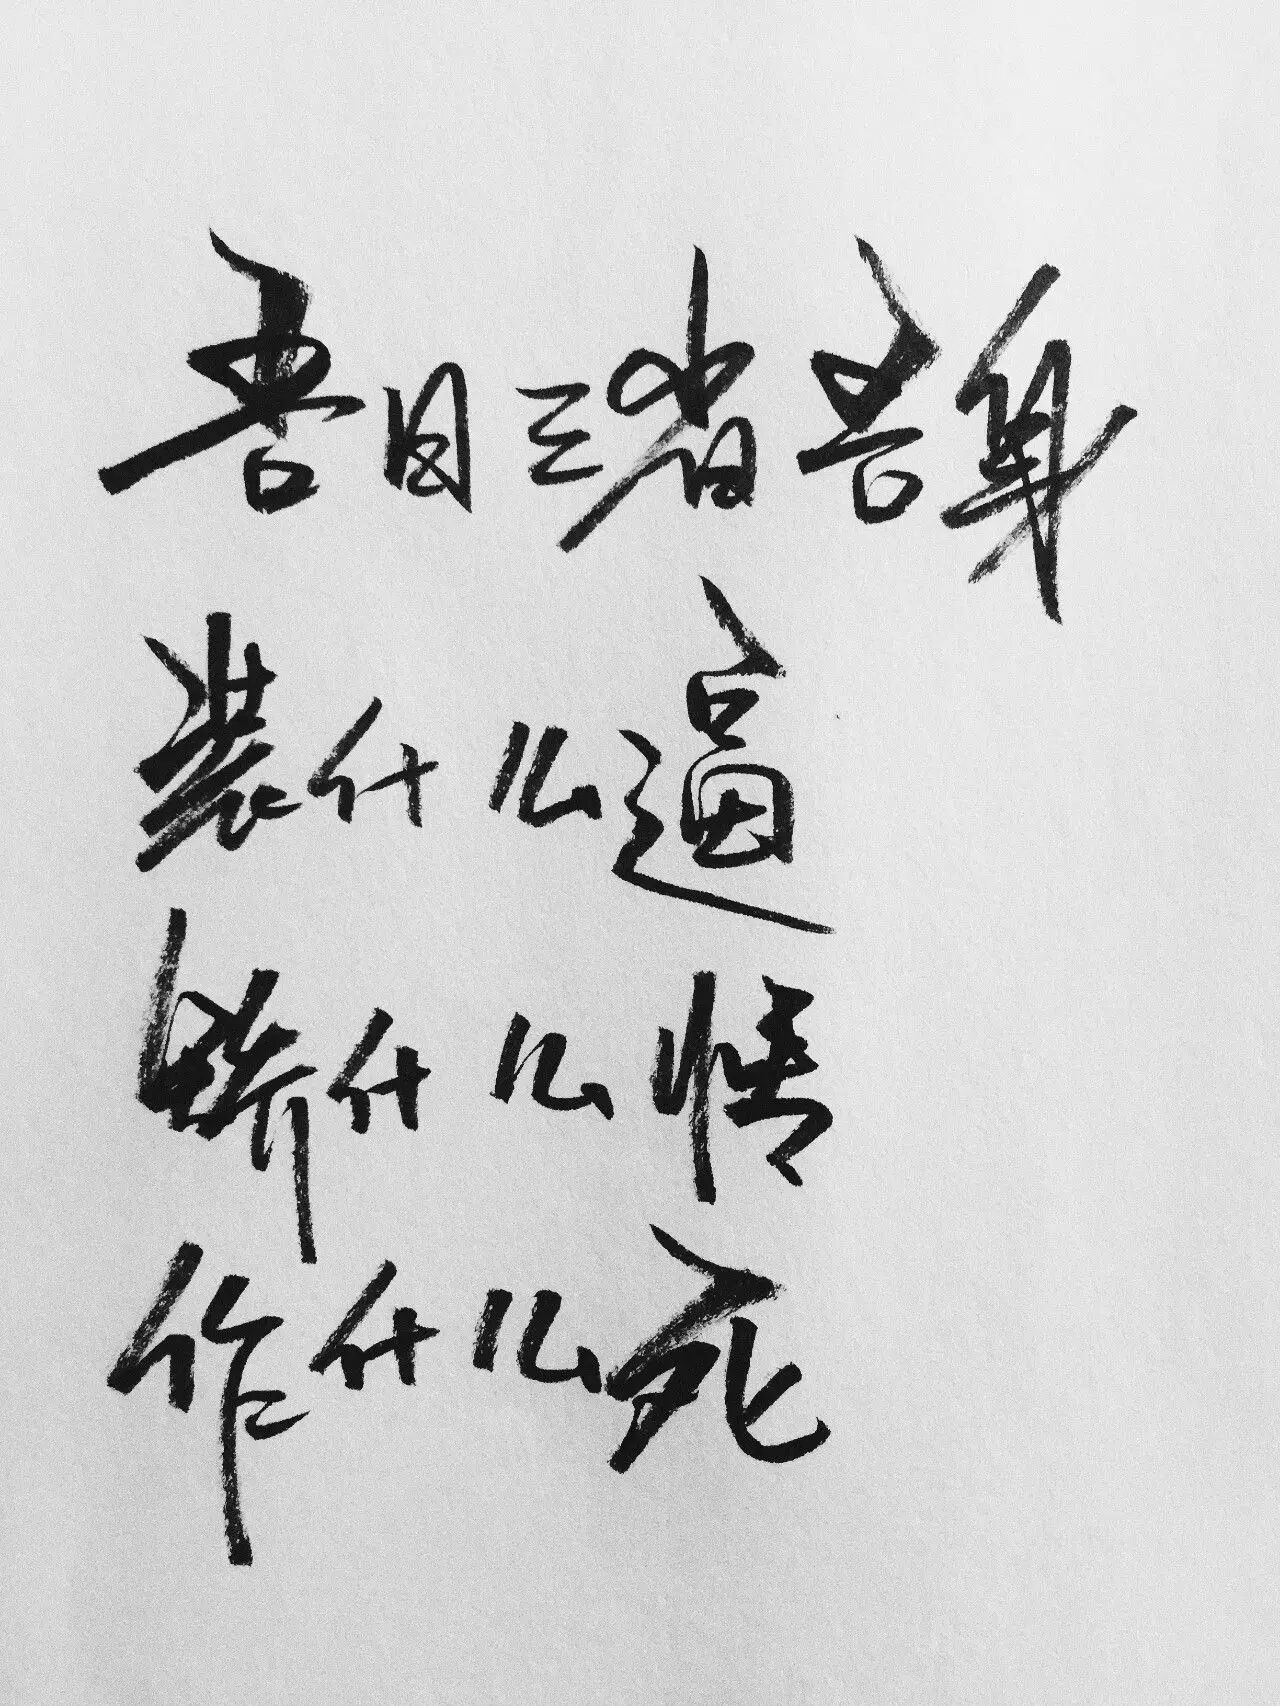 吾日三省吾身
装什么逼
矫什么情
作什么死